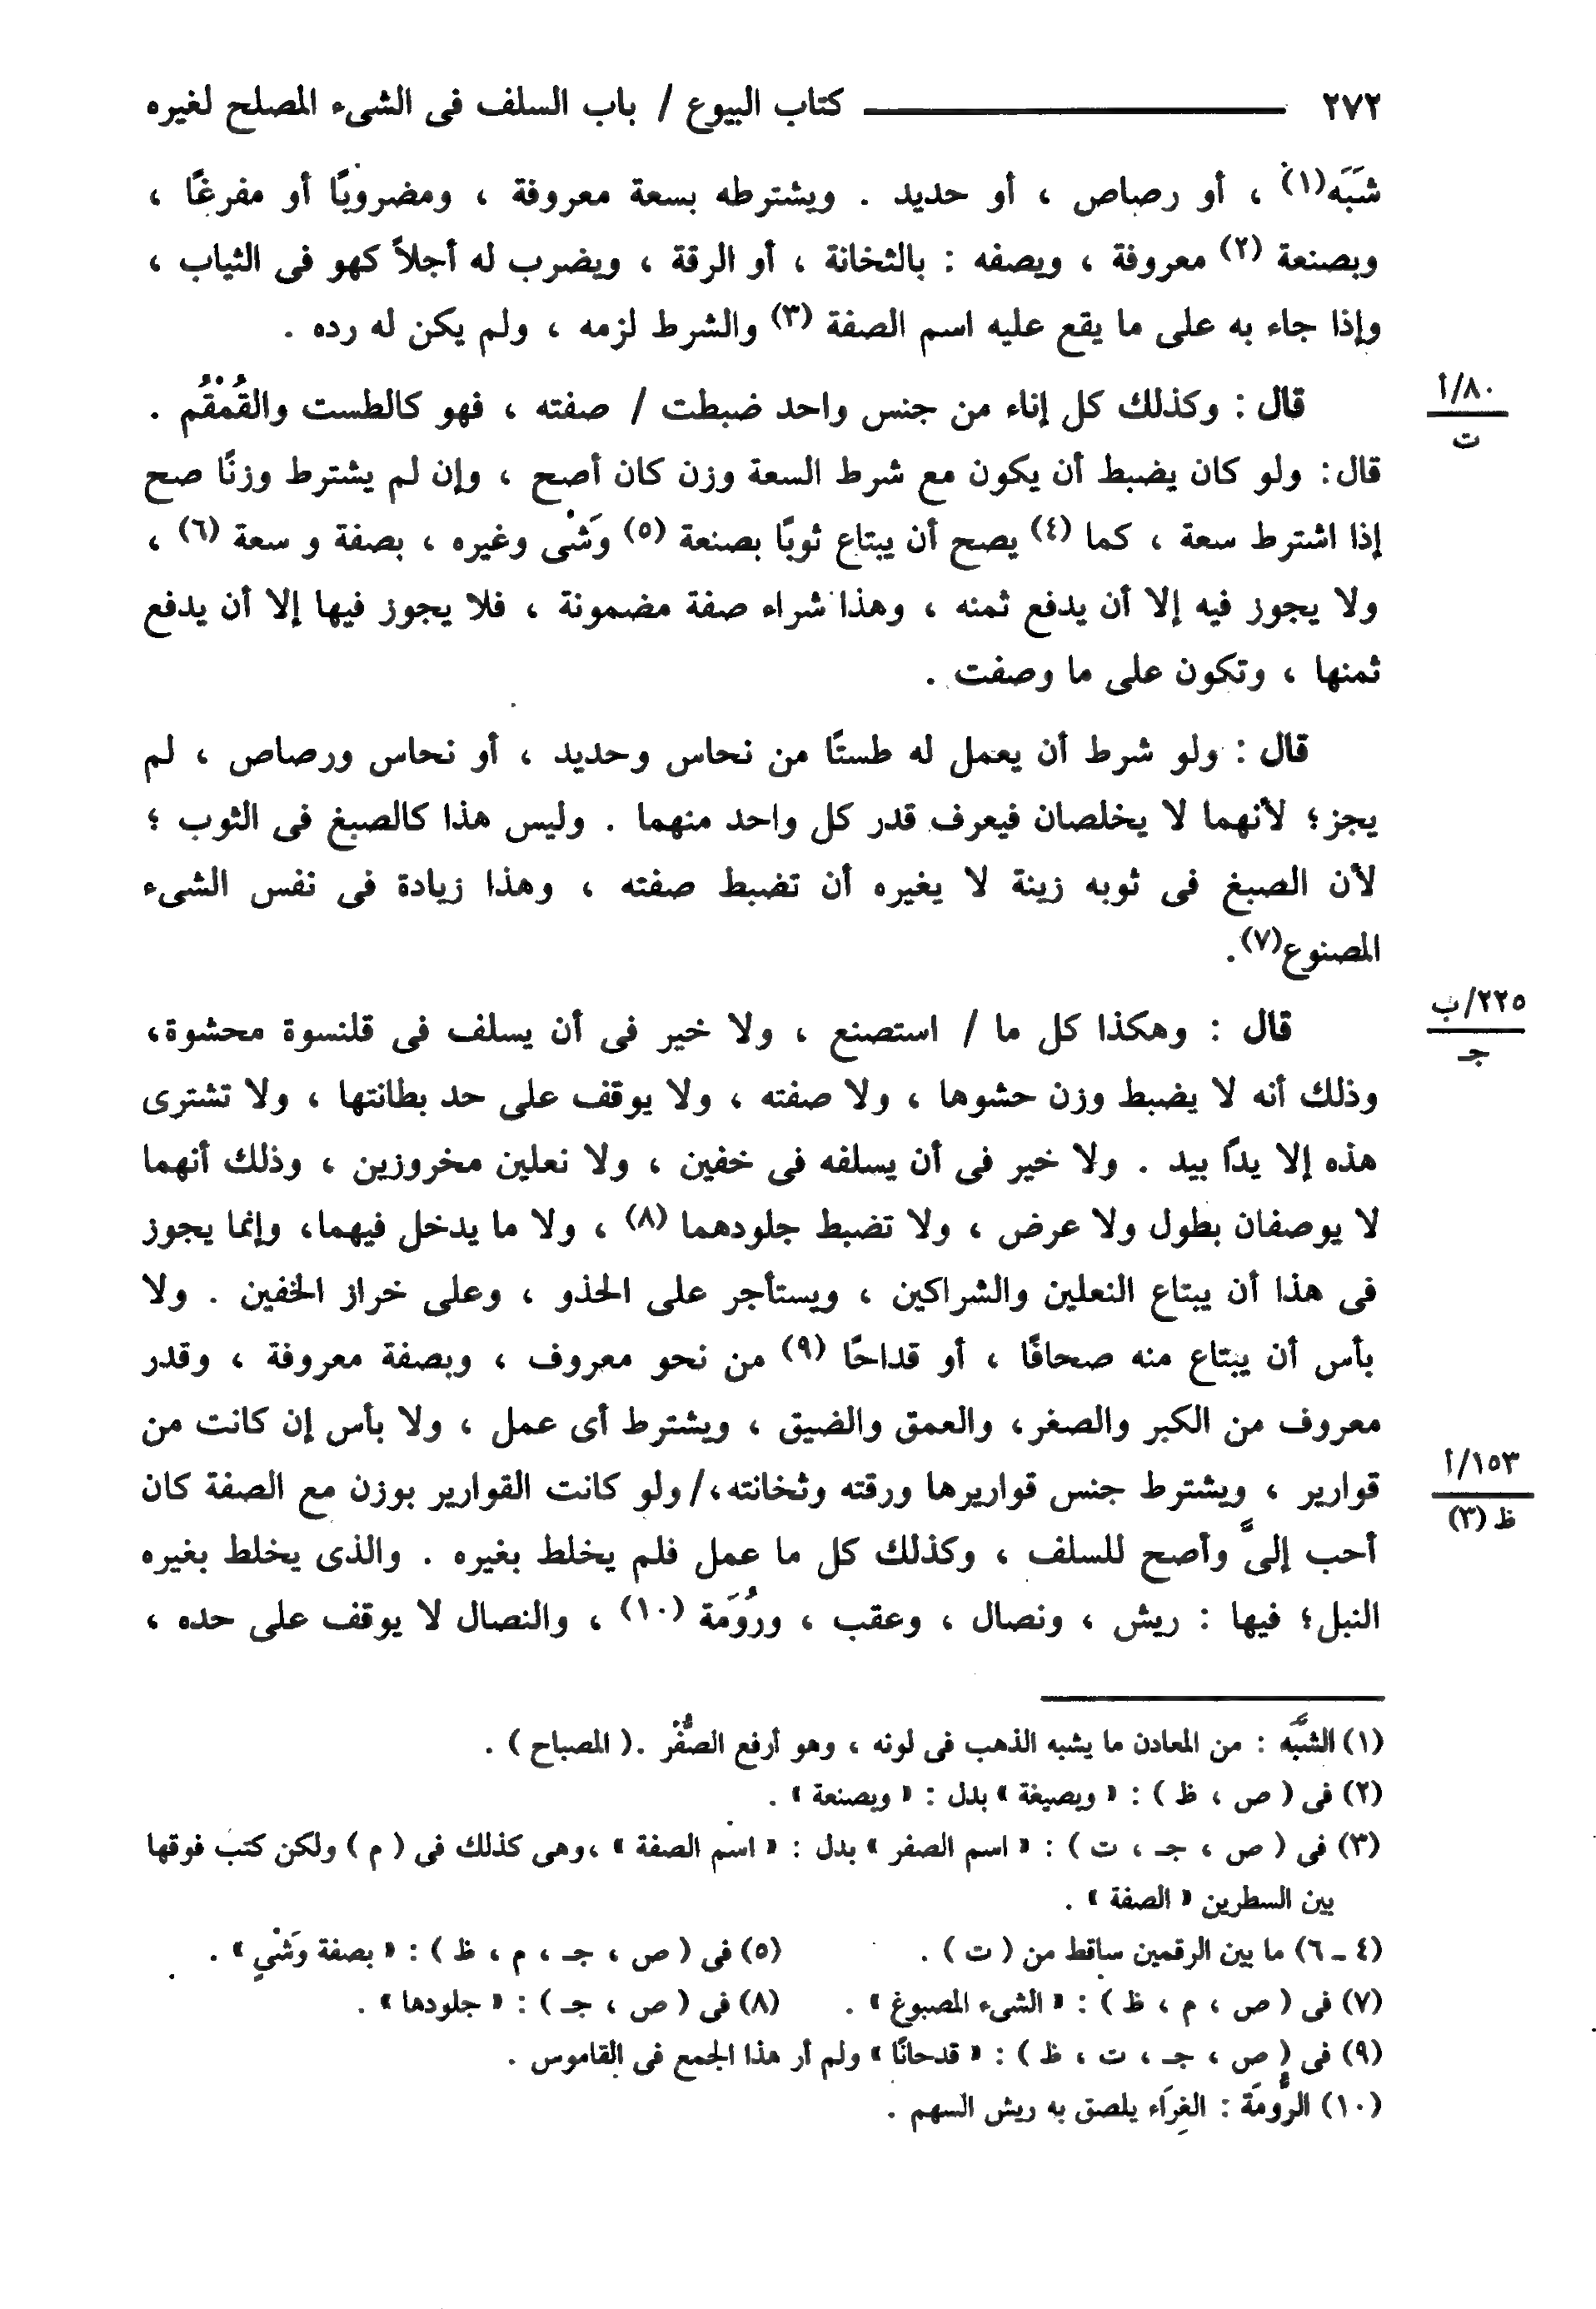 ٢٧٢ كتاب البيوع / باب السلف فى الشىء المصلح لغيره
شَبَه(١) ، أو رصاص ، أو حديد . ويشترطه بسعة معروفة ، ومضروبًا أو مفرغًا ،
وبصنعة (٢) معروفة ، ويصفه : بالثخانة ، أو الرقة ، ويضرب له أجلاً كهو فى الثياب ،
وإذا جاء به على ما يقع عليه اسم الصفة (٣) والشرط لزمه ، ولم يكن له رده .
قال : وكذلك كل إناء من جنس واحد ضبطت / صفته ، فهو كالطست والقُمْقُم .
٨٠/أ
ت
قال: ولو كان يضبط أن يكون مع شرط السعة وزن كان أصح ، وإن لم يشترط وزنًا صح
إذا اشترط سعة ، كما (٤) يصح أن يبتاع ثوبًا بصنعة (٥) وَشْى وغيره ، بصفة و سعة (٦) ،
ولا يجوز فيه إلا أن يدفع ثمنه ، وهذا شراء صفة مضمونة ، فلا يجوز فيها إلا أن يدفع
ثمنها ، وتكون على ما وصفت .
قال : ولو شرط أن يعمل له طستًا من نحاس وحديد ، أو نحاس ورصاص ، لم
يجز؛ لأنهما لا يخلصان فيعرف قدر كل واحد منهما . وليس هذا كالصبغ فى الثوب ؛
لأن الصبغ فى ثوبه زينة لا يغيره أن تضبط صفته ، وهذا زيادة فى نفس الشىء
المصنوع(٧).
قال : وهكذا كل ما / استصنع ، ولا خير فى أن يسلف فى قلنسوة محشوة،
٢٢٥/ب
جـ
وذلك أنه لا يضبط وزن حشوها ، ولا صفته ، ولا يوقف على حد بطانتها ، ولا تشترى
هذه إلا يدًا بيد . ولا خير فى أن يسلفه فى خفين ، ولا نعلين مخروزين ، وذلك أنهما
لا يوصفان بطول ولا عرض ، ولا تضبط جلودهما (٨) ، ولا ما يدخل فيهما، وإنما يجوز
فى هذا أن يبتاع النعلين والشراكين ، ويستأجر على الحذو ، وعلى خراز الخفين . ولا
بأس أن يبتاع منه صحافًا ، أو قداحًا (٩) من نحو معروف ، وبصفة معروفة ، وقدر
معروف من الكبر والصغر، والعمق والضيق ، ويشترط أى عمل ، ولا بأس إن كانت من
قوارير ، ويشترط جنس قواريرها ورقته وثخانته،/ ولو كانت القوارير بوزن مع الصفة كان
١٥٣/أ
ظ (٣)
أحب إلىَّ وأصح للسلف ، وكذلك كل ما عمل فلم يخلط بغيره . والذى يخلط بغيره
النبل؛ فيها : ريش ، ونصال ، وعقب ، ورُومَة (١٠) ، والنصال لا يوقف على حده ،
(١) الشَّبَه : من المعادن ما يشبه الذهب فى لونه ، وهو أرفع الصُّفْر .( المصباح ) .
(٢) فى ( ص ، ظ ) : « وبصيغة » بدل : « وبصنعة » .
(٣) فى ( ص ، جـ ، ت ) : « اسم الصفر » بدل : « اسم الصفة » ،وهى كذلك فى ( م ) ولكن كتب فوقها
بين السطرين « الصفة » .
(٤ ـ ٦) ما بين الرقمين ساقط من ( ت ) . (٥) فى ( ص ، جـ ، م ، ظ ) : « بصفة وَشْىٍ » .
(٧) فى ( ص ، م ، ظ ) : « الشىء المصبوغ » . (٨) فى ( ص ، جـ ) : « جلودها » .
(٩) فى ( ص ، جـ ، ت ، ظ ) : « قدحانًا » ولم أر هذا الجمع فى القاموس .
(١٠) الرُّومَة : الغِرَاء يلصق به ريش السهم .